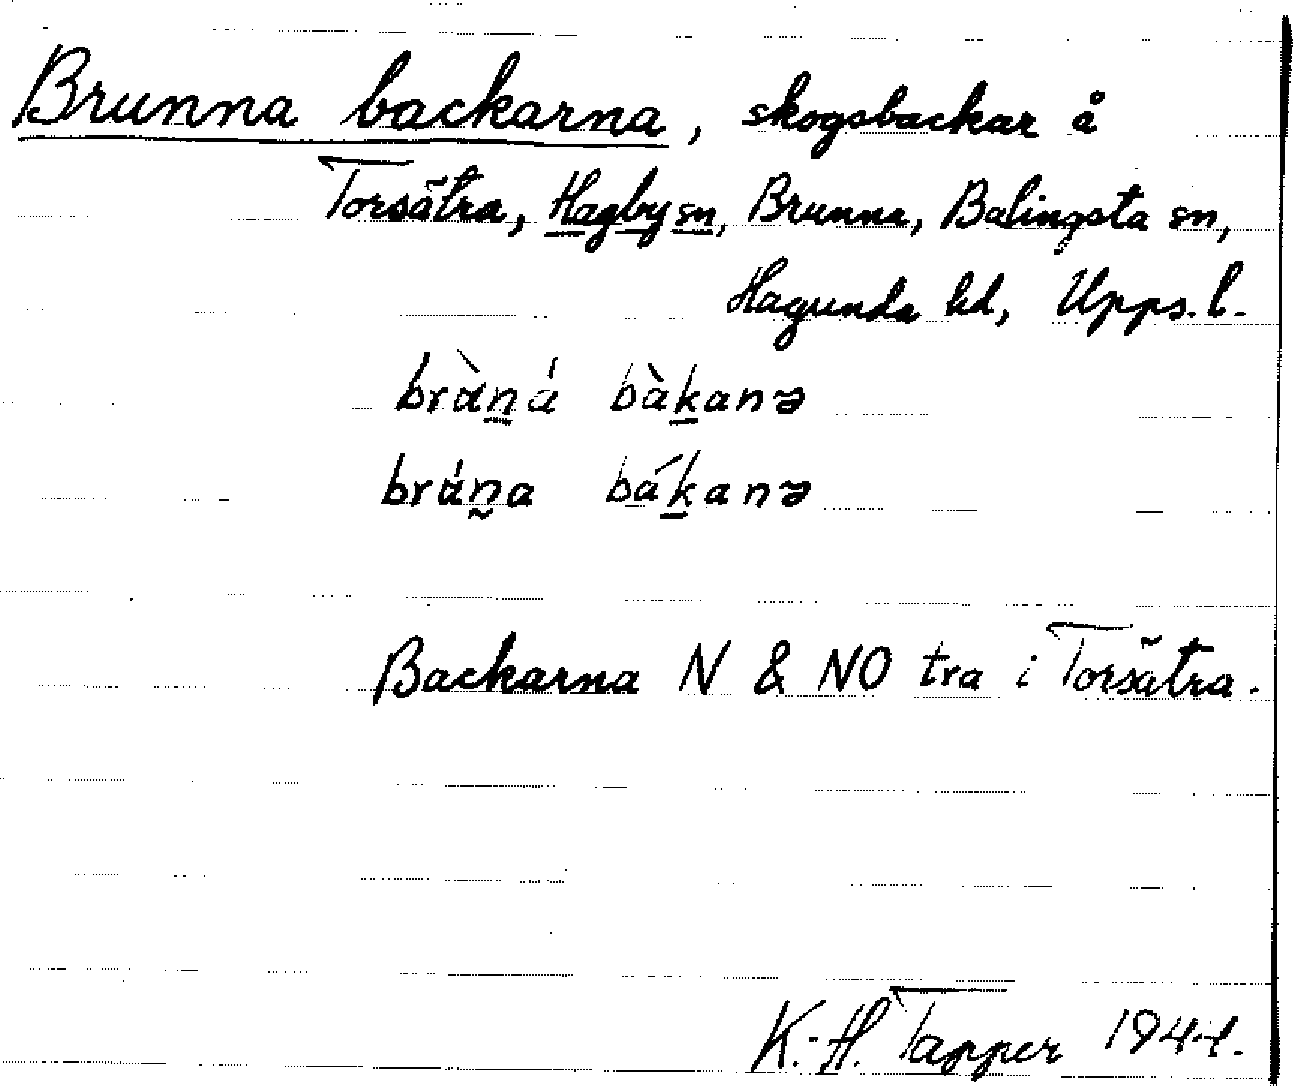 Brunna backarna, skogsbackar å
Torsätra, Hagby sn, Brunna, Balingsta sn,
Hagunda hd, Upps. l.
brὰn̲ά bàk̲anə
brάn̰a bák̲anə
Backarna N & NO tra i Torsätra.
K.-H. Tapper 1944.